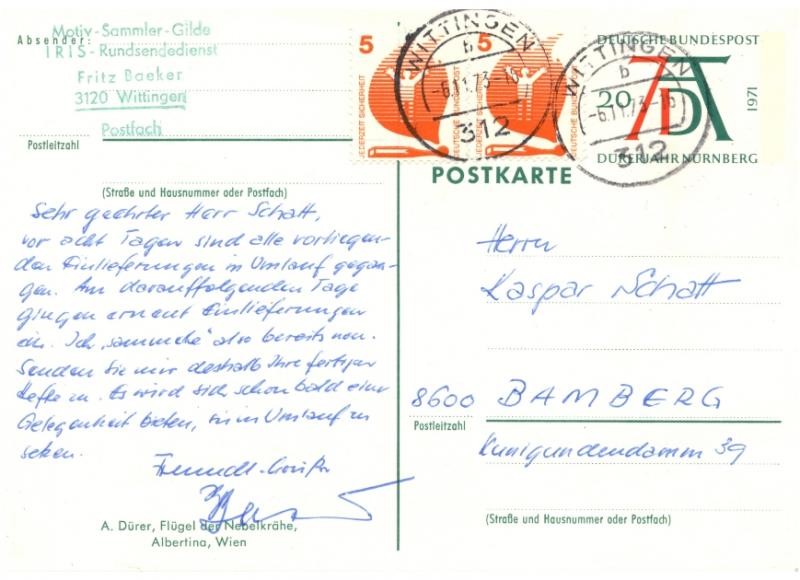 Absender:
Motiv-Sammler-Gilde
IRIS-Rundsendedienst
Fritz Baeker
3120 Wittingen
Postfach
Postleitzahl
(Straße und Hausnummer oder Postfach)
Sehr geehrter Herr Schatt,
vor acht Tagen sind alle vorliegen-
den Einlieferungen in Umlauf gegan-
gen. Am darauffolgenden Tage
gingen erneut Einlieferungen
ein. Ich "sammele" also bereits neu.
Senden Sie mir deshalb Ihre fertigen
Hefte zu. Es wird sich schon bald eine
Gelegenheit bieten, sie in Umlauf zu
setzen.
Freundl. Grüße
A. Dürer, Flügel der Nebelkrähe,
Albertina, Wien
5
JEDERZEIT SICHERHEIT
DEUTSCHE BUNDESPOST
5
JEDERZEIT SICHERHEIT
DEUTSCHE BUNDESPOST
WITTINGEN
b
-6.11.73-16
312
WITTINGEN
b
-6.11.73-16
312
DEUTSCHE BUNDESPOST
20
AD
1971
DÜRERJAHR NÜRNBERG
POSTKARTE
Herrn
Kaspar Schatt
8600 BAMBERG
Postleitzahl
Kunigundendamm 39
(Straße und Hausnummer oder Postfach)